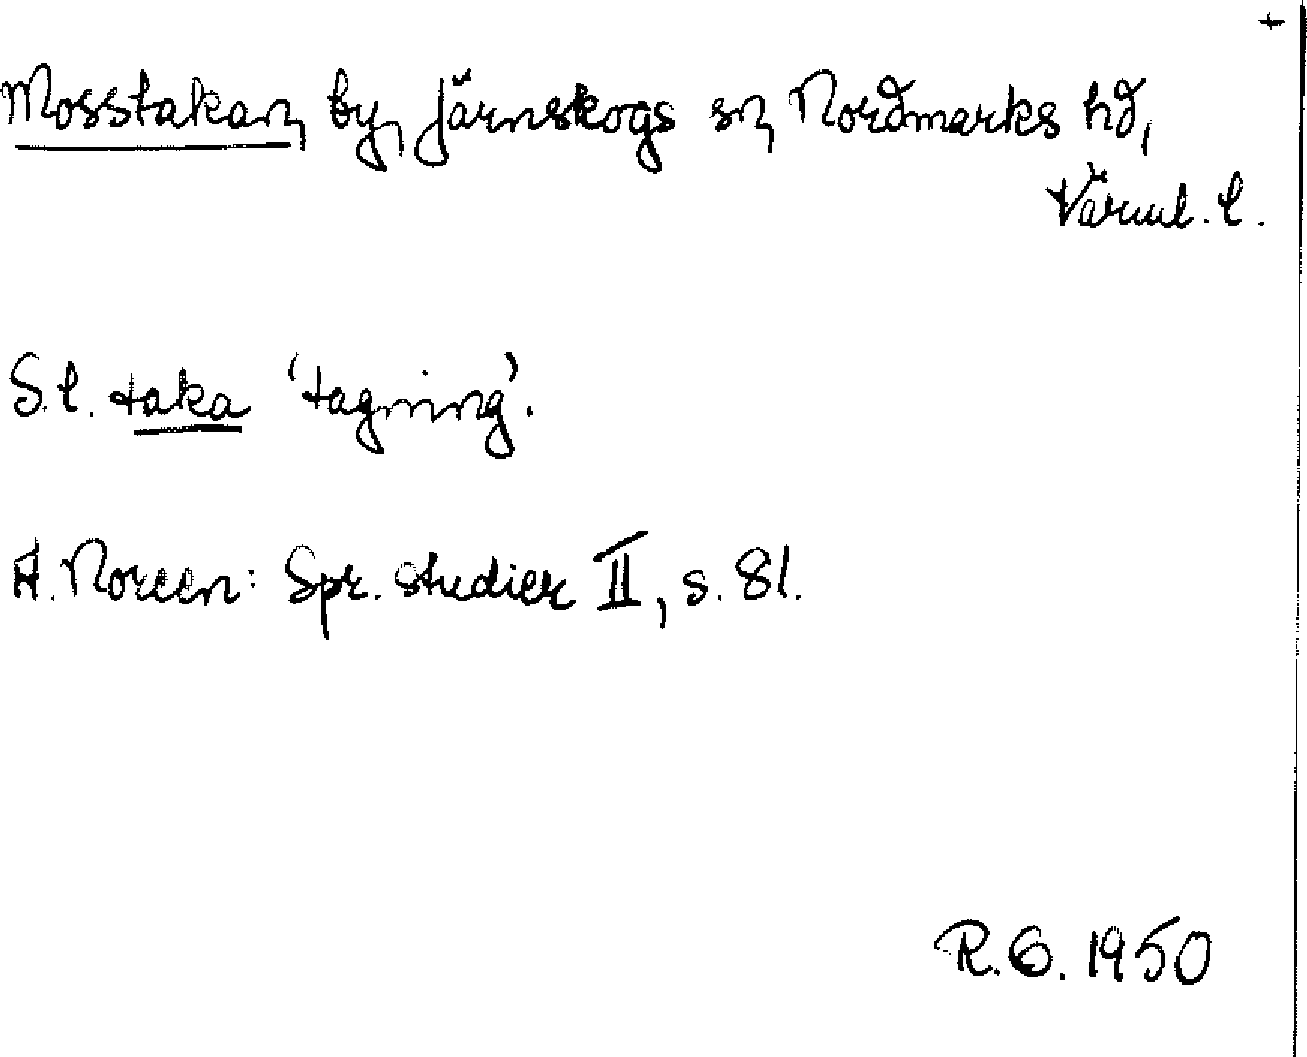 +
Mosstakan, by, Järnskogs sn, Nordmarks hd,
Värml. l.
S.l. taka 'tagning'.
A. Noreen: Spr. studier II, s. 81.
R.G. 1950